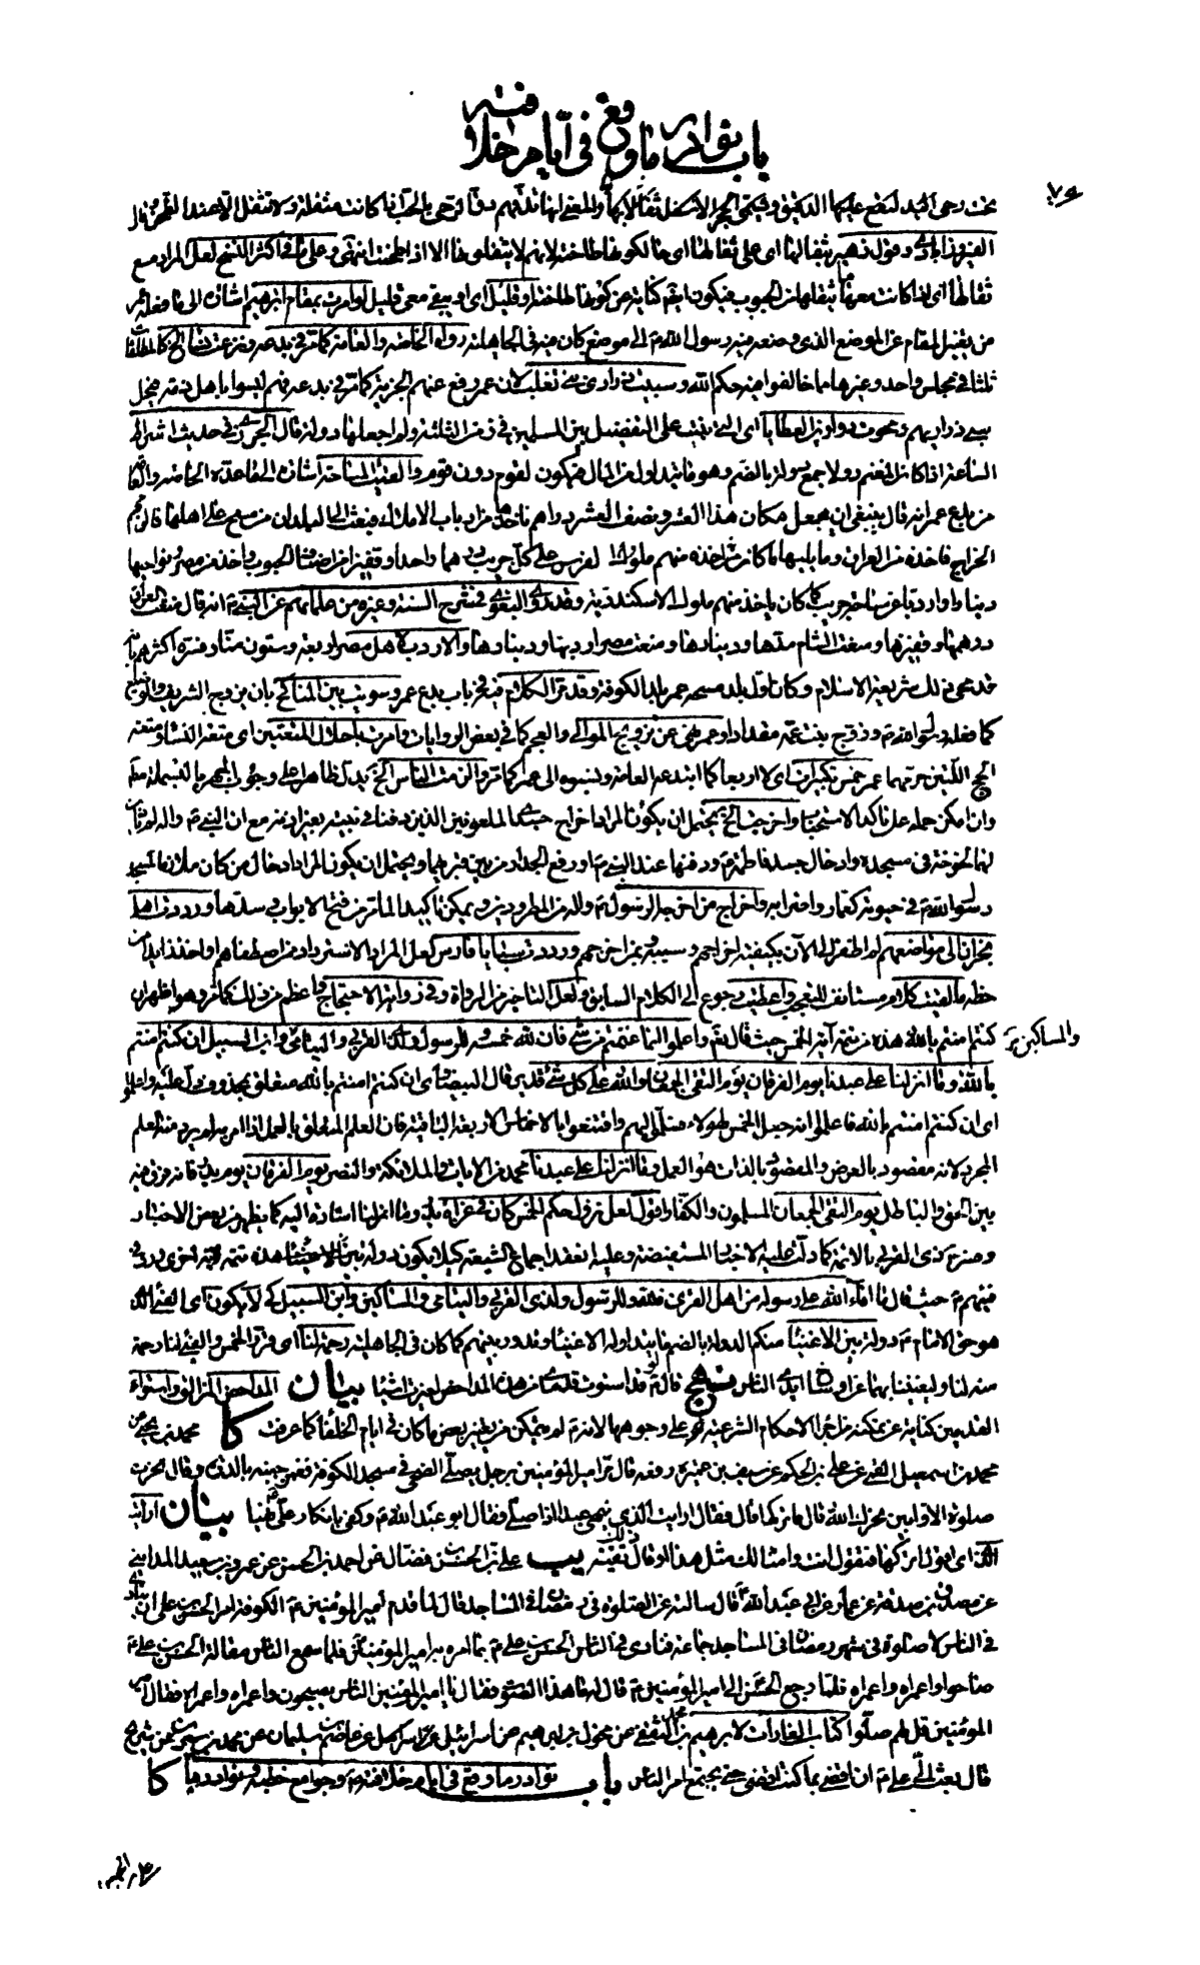 باب نوادر ما وقع في أيام خلافته
تحت رحى اليد ليقع عليها الدقيق ويسمى الحجر الأسفل ثفالا بها والمعنى أنها تدقهم دق الرحى بالحب إذا كانت مثفلة ولا تثفل إلا عند الطحن وقال
الفيروزآبادي وقول زهير بثفالها أي على ثفالها أي حال كونها طاحنة لأنهم لا يثفلونها إلا إذا طحنت انتهى وعلى ما في أكثر النسخ لعل المراد مع
ثفالها أي إذا كانت معها ثفلها من الحبوب فيكون أيضا كناية عن كونها طاحنة أو قليل أي أو يبقى معي قليل لو أمرت بمقام إبراهيم إشارة إلى ما فعله عمر
من تغيير المقام عن الموضع الذي وضعه فيه رسول الله ص إلى موضع كان فيه في الجاهلية رواه الخاصة والعامة كما مر في بدعه
ثلثا في مجلس واحد وغيرها مما خالفوا فيه حكم الله وسبيت ذراري بني تغلب لأن عمر رفع عنهم الجزية كما مر في بدعه فهم ليسوا بأهل ذمة فيحل
سبي ذراريهم ومحوت دواوين العطايا أي التي بنيت على التفضيل بين المسلمين في زمن الثلاثة ولم أجعلها دولة قال الجزري في حديث أشراط
الساعة إذا كان المغنم دولا جمع دولة بالضم وهو ما يتداول من المال فيكون لقوم دون قوم وألقيت المساحة إشارة إلى ما عده الخاصة والعامة
من بدع عمر أنه قال ينبغي أن يجعل مكان هذا العشر ونصف العشر دراهم نأخذها من أرباب الأملاك فبعث إلى البلدان من مسح على أهلها فألزمهم
الخراج فأخذه من العراق وما يليها ما كان أخذه منهم ملوك الفرس على كل جريب درهما واحدا وقفيزا من أصناف الحبوب وأخذ من مصر ونواحيها
دينارا وإردبا عن مساحة جريب كما كان يأخذ منهم ملوك الإسكندرية وقد روى البغوي في شرح السنة وغيره من علمائهم عن النبي ص أنه قال منعت العراق
درهمها وقفيزها ومنعت الشام مدها ودينارها ومنعت مصر إردبها ودينارها والإردب لأهل مصر أربعة وستون منا وفسره أكثرهم بأنه
قد محي ذلك شريعة الإسلام وكان أول بلد مسحه عمر بلد الكوفة وقد مر الكلام فيه في باب بدع عمر وسويت بين المناكح بأن يزوج الشريف والوضيع
كما فعله رسول الله ص وزوج بنت عمه مقدادا وعمر نهى عن تزويج الموالي والعجم كما في بعض الروايات وأمرت بإحلال المتعتين أي متعة النساء ومتعة
الحج اللتين حرمهما عمر خمس تكبيرات أي لا أربعا كما ابتدعه العامة ونسبوه إلى عمر كما مر وألزمت الناس الخ يدل ظاهرا على وجوب الجهر بالبسملة مطلقا
وإن أمكن حمله على تأكد الاستحباب وأخرجت الخ يحتمل أن يكون المراد إخراج جسدي الملعونين الذين دفنا في بيته بغير إذنه مع أن النبي ص
لهما لخوخة في مسجده وإدخال جسد فاطمة ع ودفنها عند النبي ص أو رفع الجدار من بين قبريهما ويحتمل أن يكون المراد إدخال من كان ملازما لمسجد
رسول الله ص في حيوته كعمار وأضرابه وإخراج من أخرجه الرسول ص من المطرودين ويمكن تأكيدا لما مر من فتح الأبواب وسدها ورددت أهل
نجران إلى مواضعهم لم أظفر إلى الآن بكيفية إخراجهم وسببه وبمن أخرجهم ورددت سبايا فارس لعل المراد الاسترداد ممن اصطفاهم أو أخذ زائدا من
حظه ما لقيت كلام مستأنف للتعجب وأعطيت رجوع إلى الكلام السابق ولعل التأخير من الرواة وفي رواية الاحتجاج وأعظم من ذلك كما مر وهو أظهر إن
كنتم آمنتم بالله هذه من تتمة آية الخمس حيث قال تعالى واعلموا أنما غنمتم من شيء فأن لله خمسه وللرسول ولذي القربى واليتامى وابن السبيل إن كنتم آمنتم
والمساكين
بالله وما أنزلنا على عبدنا يوم الفرقان يوم التقى الجمعان والله على كل شيء قدير قال البيضاوي إن كنتم آمنتم بالله متعلق بمحذوف دل عليه واعلموا
أي إن كنتم آمنتم بالله فاعلموا أنه جعل الخمس لهؤلاء فسلموا إليهم واقتنعوا بالأخماس الأربعة الباقية فإن العلم المتعلق بالعمل إذا أمر به لم يرد منه العلم
المجرد لأنه مقصود بالعرض والمقصود بالذات هو العمل وما أنزلنا على عبدنا محمد من الآيات والملائكة والنصر يوم الفرقان يوم بدر فإنه فرق فيه
بين الحق والباطل يوم التقى الجمعان المسلمون والكفار أقول لعل نزول حكم الخمس كان في غزاة بدر وما أنزلنا إشارة إليه كما يظهر من بعض الأخبار
وفسر ذي القربى بالأئمة كما دلت عليه الأخبار المستفيضة وعليه انعقد إجماع الشيعة كيلا يكون دولة بين الأغنياء هذه تتمة لآية أخرى ورد في
فيئهم ع حيث قال ما أفاء الله على رسوله من أهل القرى فلله وللرسول ولذي القربى واليتامى والمساكين وابن السبيل كي لا يكون أي الفيء الذي
هو حق الإمام ع دولة بين الأغنياء منكم الدولة بالضم ما يتداوله الأغنياء وتدور بينهم كما كان في الجاهلية رحمة لنا أي فرض الخمس والفيء لنا رحمة
منه لنا وليغنينا بهما عن أوساخ أيدي الناس نهج قال ع لو قد استوت قدماي من هذه المداحض لغيرت أشياء بيان المداحض المزالق واستواء
القدمين كناية عن تمكنه من إجراء الأحكام الشرعية على وجوهها لأنه ع لم يتمكن من تغيير بعض ما كان في أيام الخلفاء كما عرفت كا محمد بن يحيى عن
محمد بن إسمعيل القمي عن علي بن الحكم عن سيف بن عميرة رفعه قال مر أمير المؤمنين برجل يصلي الضحى في مسجد الكوفة فغمز جنبه بالدرة وقال نحرت
صلوة الأوابين نحرك الله قال فأتركها قال فقال أرأيت الذي ينهى عبدا إذا صلى فقال أبو عبد الله ع وكفى بإنكار علي ع نهيا بيان أرأيت
الذي أي أقول اتركها فتقول أنت وأمثالك مثل هذا أو قال ذلك تقية يب علي بن الحسن بن فضال عن أحمد بن الحسن عن عمرو بن سعيد المدائني
عن مصدق بن صدقة عن عمار عن أبي عبد الله ع قال سألته عن الصلوة في رمضان في المساجد قال لما قدم أمير المؤمنين ع الكوفة أمر الحسن بن علي أن ينادي
في الناس لا صلوة في شهر رمضان في المساجد جماعة فنادى في الناس الحسن بن علي ع بما أمره به أمير المؤمنين فلما سمع الناس مقالة الحسن بن علي ع
صاحوا وا عمراه وا عمراه فلما رجع الحسن إلى أمير المؤمنين ع قال له ما هذا الصوت فقال يا أمير المؤمنين الناس يصيحون وا عمراه وا عمراه فقال أمير
المؤمنين قل لهم صلوا كتاب الغارات لإبراهيم بن محمد الثقفي عن مخول بن إبراهيم عن إسرائيل عن عاصم بن سليمان عن محمد بن سيرين عن شريح
قال بعث إلي علي ع أن أقضي بما كنت أقضي حتى يجتمع أمر الناس باب نوادر ما وقع في أيام خلافته ع وجوامع خطبه ونوادرها كا